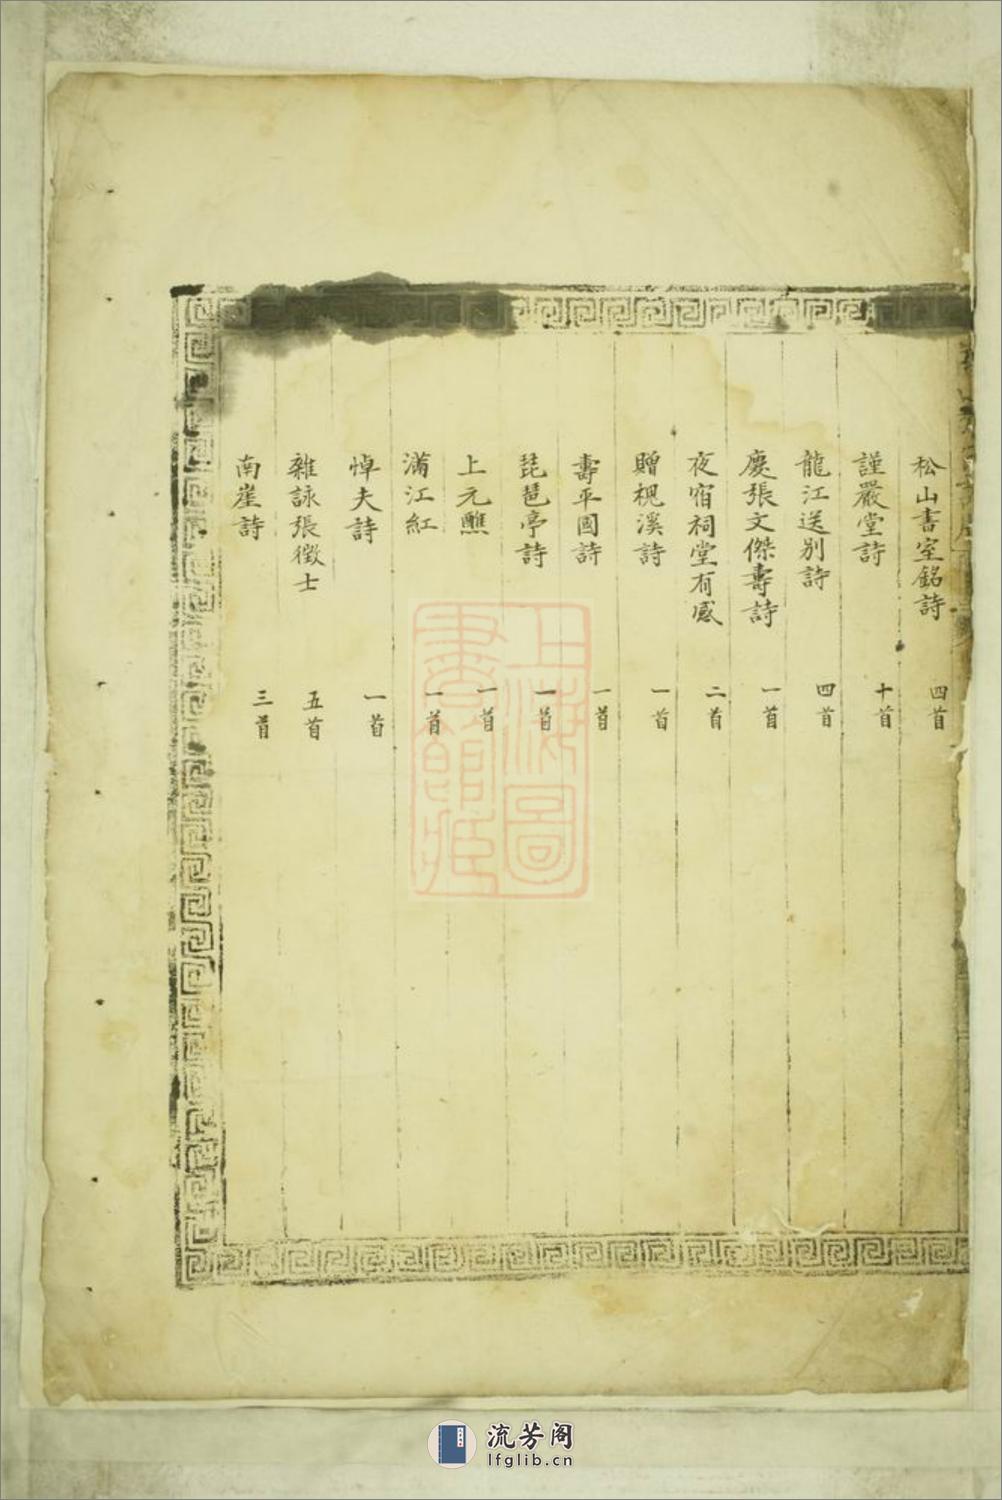 松山書室銘詩 四首
謹嚴堂詩 十首
龍江送別詩 四首
慶張文傑壽詩 一首
夜宿祠堂有感 二首
贈槐溪詩 一首
壽平國詩 一首
琵琶亭詩 一首
上元醮 一首
滿江紅 一首
悼夫詩 一首
雜詠張徵士 五首
南崖詩 三首
上海圖書館藏
流芳阁
lfglib.cn